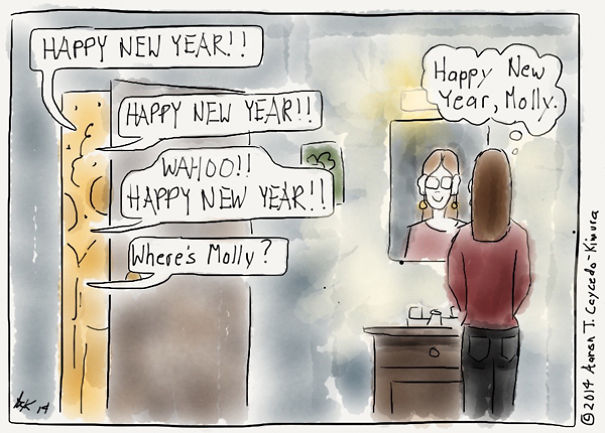 HAPPY NEW YEAR!!
HAPPY NEW YEAR!!
WAHOO!!
HAPPY NEW YEAR!!
Where's Molly?
Happy New
Year, Molly.
©2014 Aaron T. Caycedo-Kimura
ACK 14